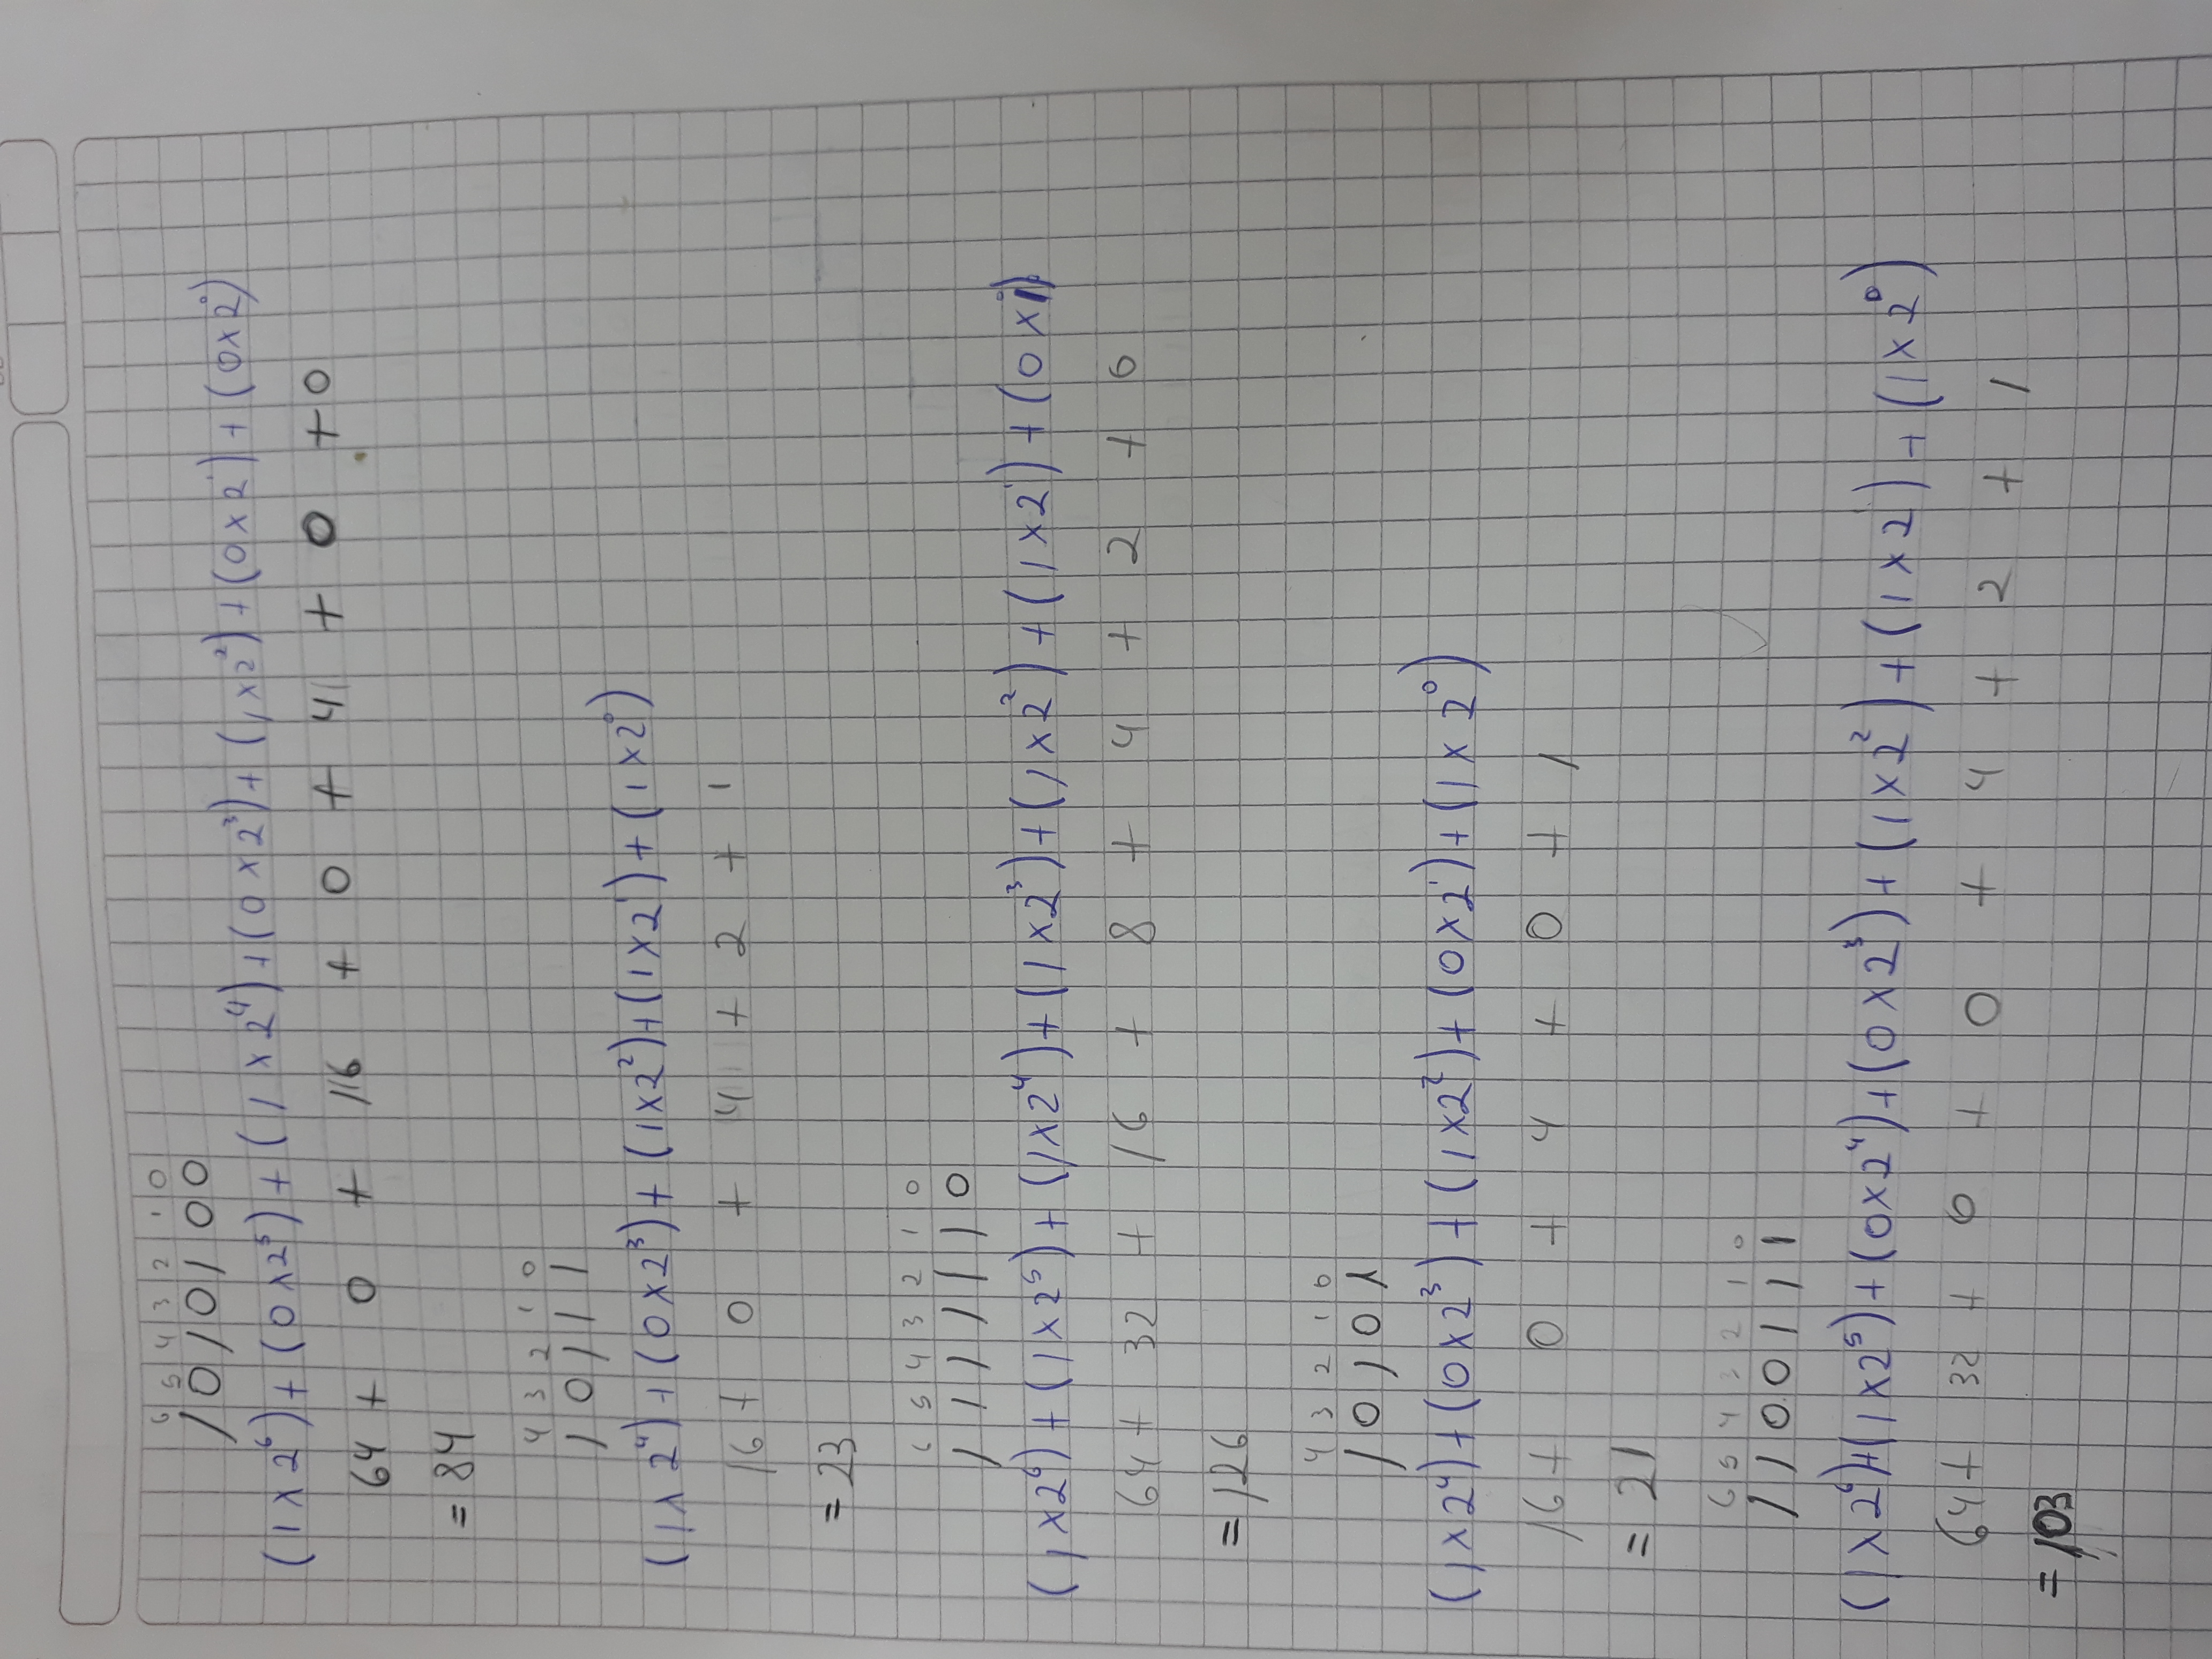 6 5 4 3 2 1 0
1 0 1 0 1 0 0
(1 x 2⁶) + (0 x 2⁵) + (1 x 2⁴) + (0 x 2³) + (1 x 2²) + (0 x 2¹) + (0 x 2⁰)
64 + 0 + 16 + 0 + 4 + 0 + 0
= 84
4 3 2 1 0
1 0 1 1 1
(1 x 2⁴) + (0 x 2³) + (1 x 2²) + (1 x 2¹) + (1 x 2⁰)
16 + 0 + 4 + 2 + 1
= 23
6 5 4 3 2 1 0
1 1 1 1 1 1 0
(1 x 2⁶) + (1 x 2⁵) + (1 x 2⁴) + (1 x 2³) + (1 x 2²) + (1 x 2¹) + (0 x
64 + 32 + 16 + 8 + 4 + 2 + 0
= 126
4 3 2 1 0
1 0 1 0 1
(1 x 2⁴) + (0 x 2³) + (1 x 2²) + (0 x 2¹) + (1 x 2⁰)
16 + 0 + 4 + 0 + 1
= 21
6 5 4 3 2 1 0
1 1 0 0 1 1 1
(1 x 2⁶) + (1 x 2⁵) + (0 x 2⁴) + (0 x 2³) + (1 x 2²) + (1 x 2¹) + (1 x 2⁰)
64 + 32 + 0 + 0 + 4 + 2 + 1
= 103